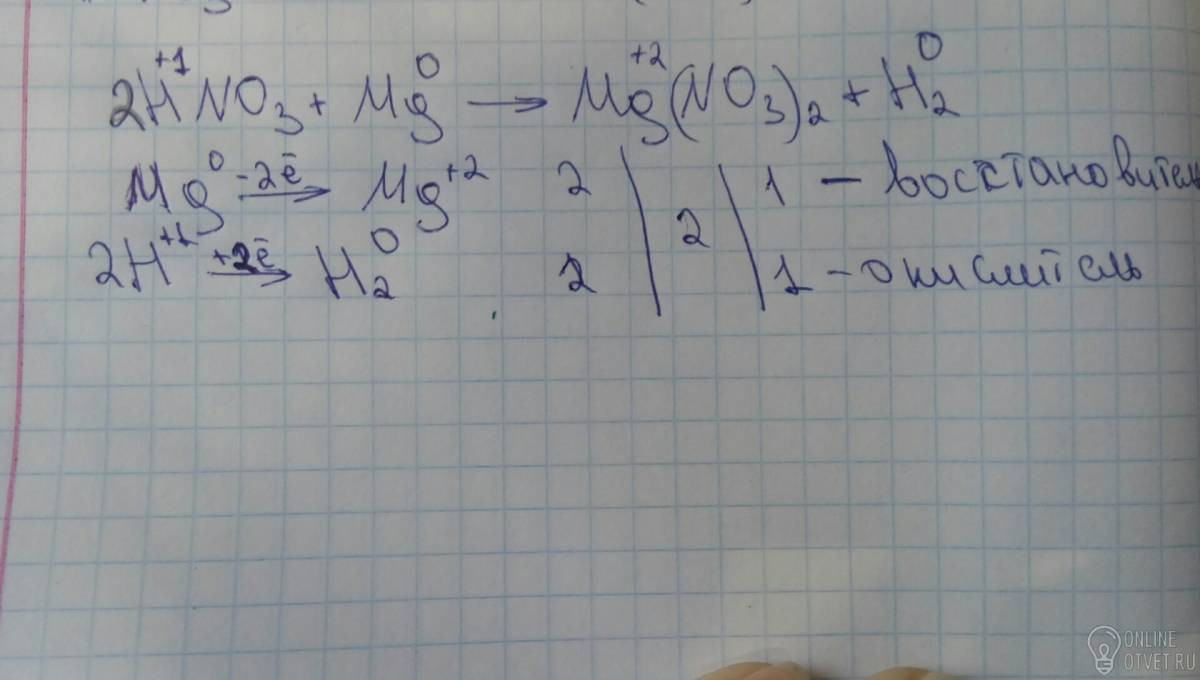 2H⁺¹NO₃ + Mg⁰ → Mg⁺²(NO₃)₂ + H₂⁰
Mg⁰ -2ē → Mg⁺² 2 | 2 | 1 – восстановитель
2H⁺¹ +2ē → H₂⁰ 2 | | 1 – окислитель
ONLINE
OTVET.RU